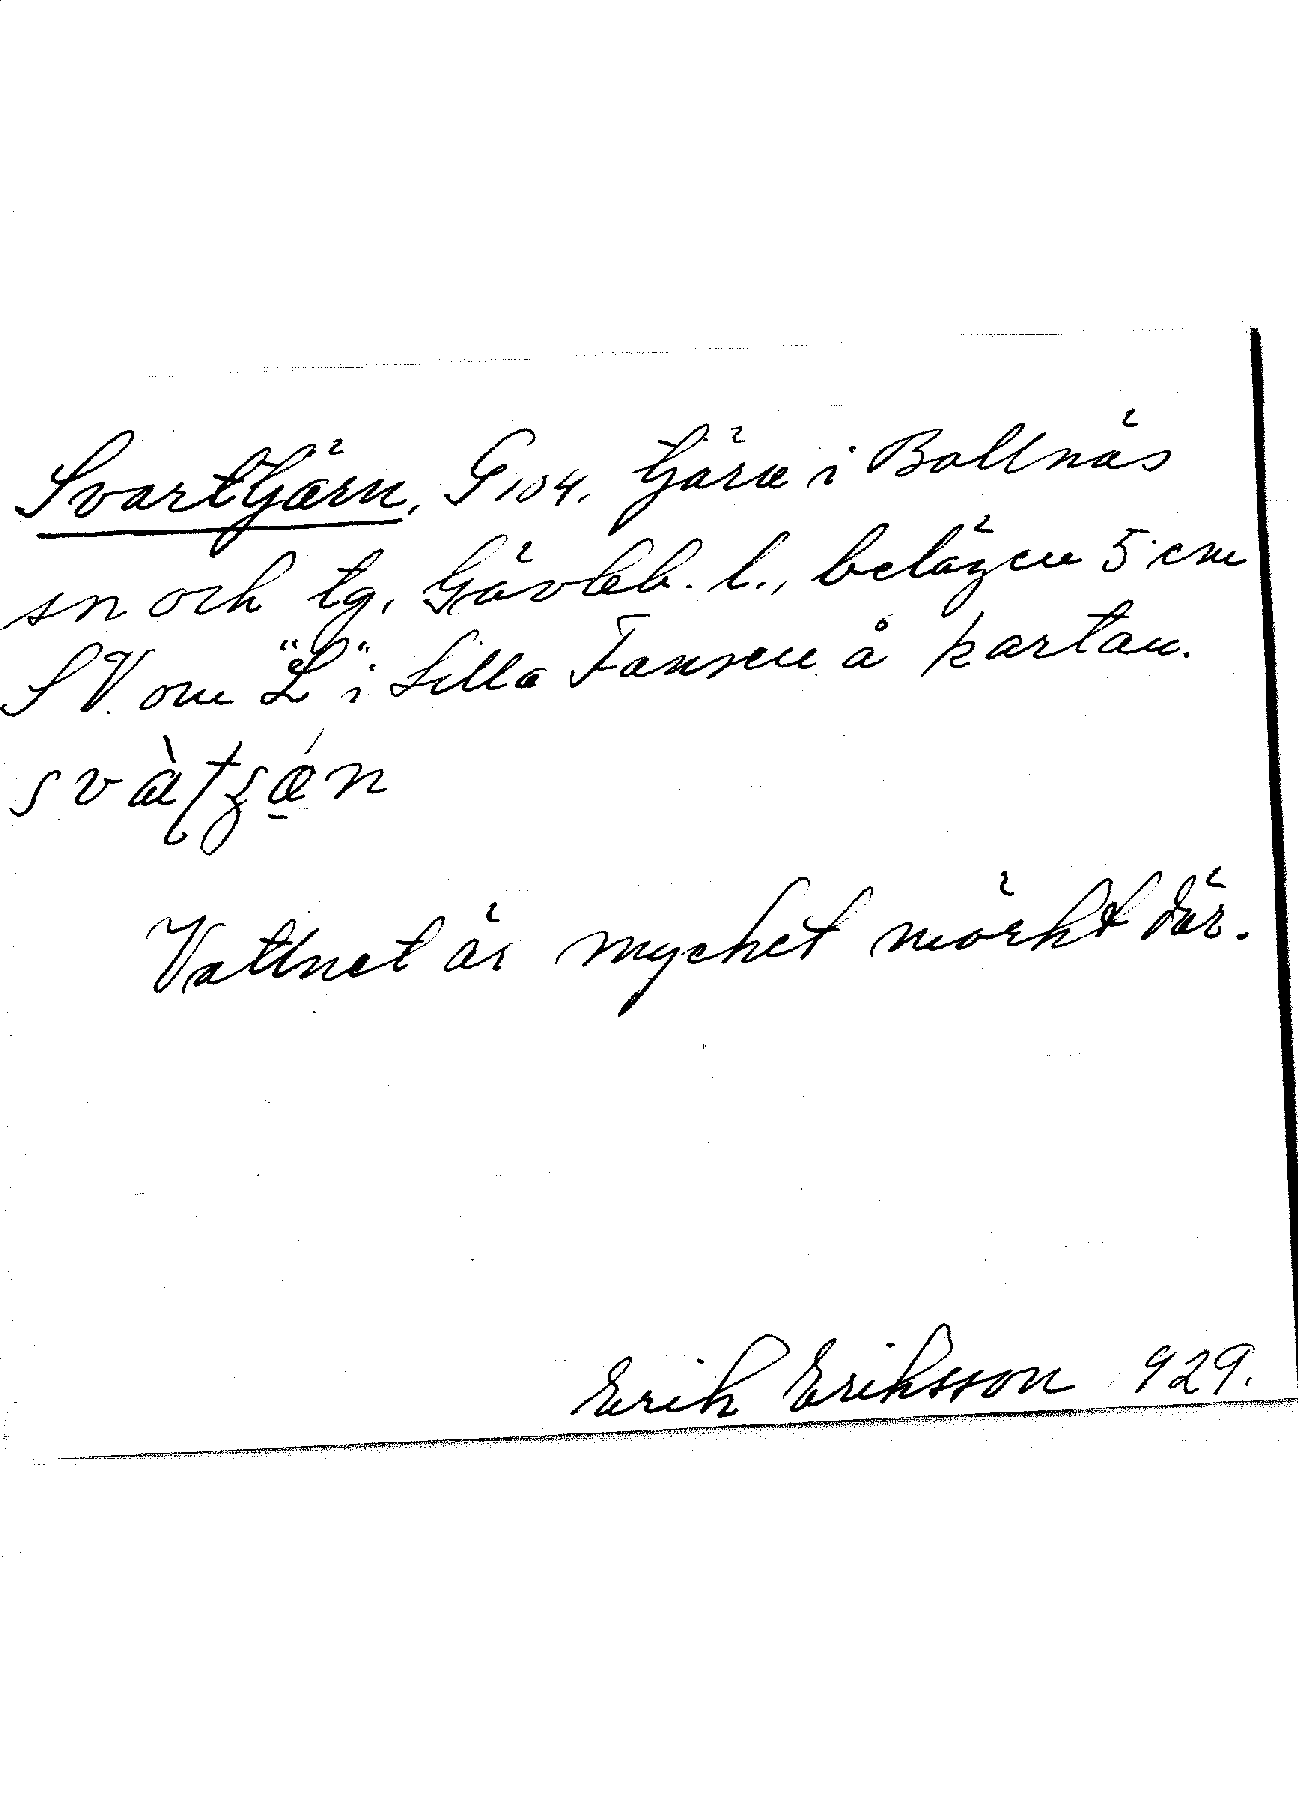 Svartjärn, G 104. tjärn i Bollnäs
sn och tg, Gävleb. l., belägen 5 cm
SV. om "L" i Lilla Fansen å kartan.
Vattnet är mycket mörkt där.
Erik Eriksson 929.